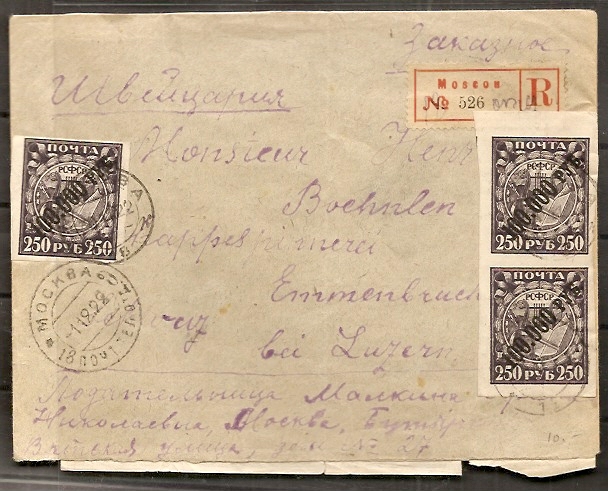 Заказное
Moscou
R
№ 526
Швейцария
Monsieur Henr
Boehnlen
Emmenbruck
bei Luzern
Подательница Малкина
Николаевна, Москва, Бутырск
Вятская улица, дом № 27
10.-
ПОЧТА
РСФСР
100.000 РУБ.
250 РУБ 250
ПОЧТА
РСФСР
100.000 РУБ.
250 РУБ 250
ПОЧТА
РСФСР
100.000 РУБ.
250 РУБ 250
МОСКВА
-1.12.22